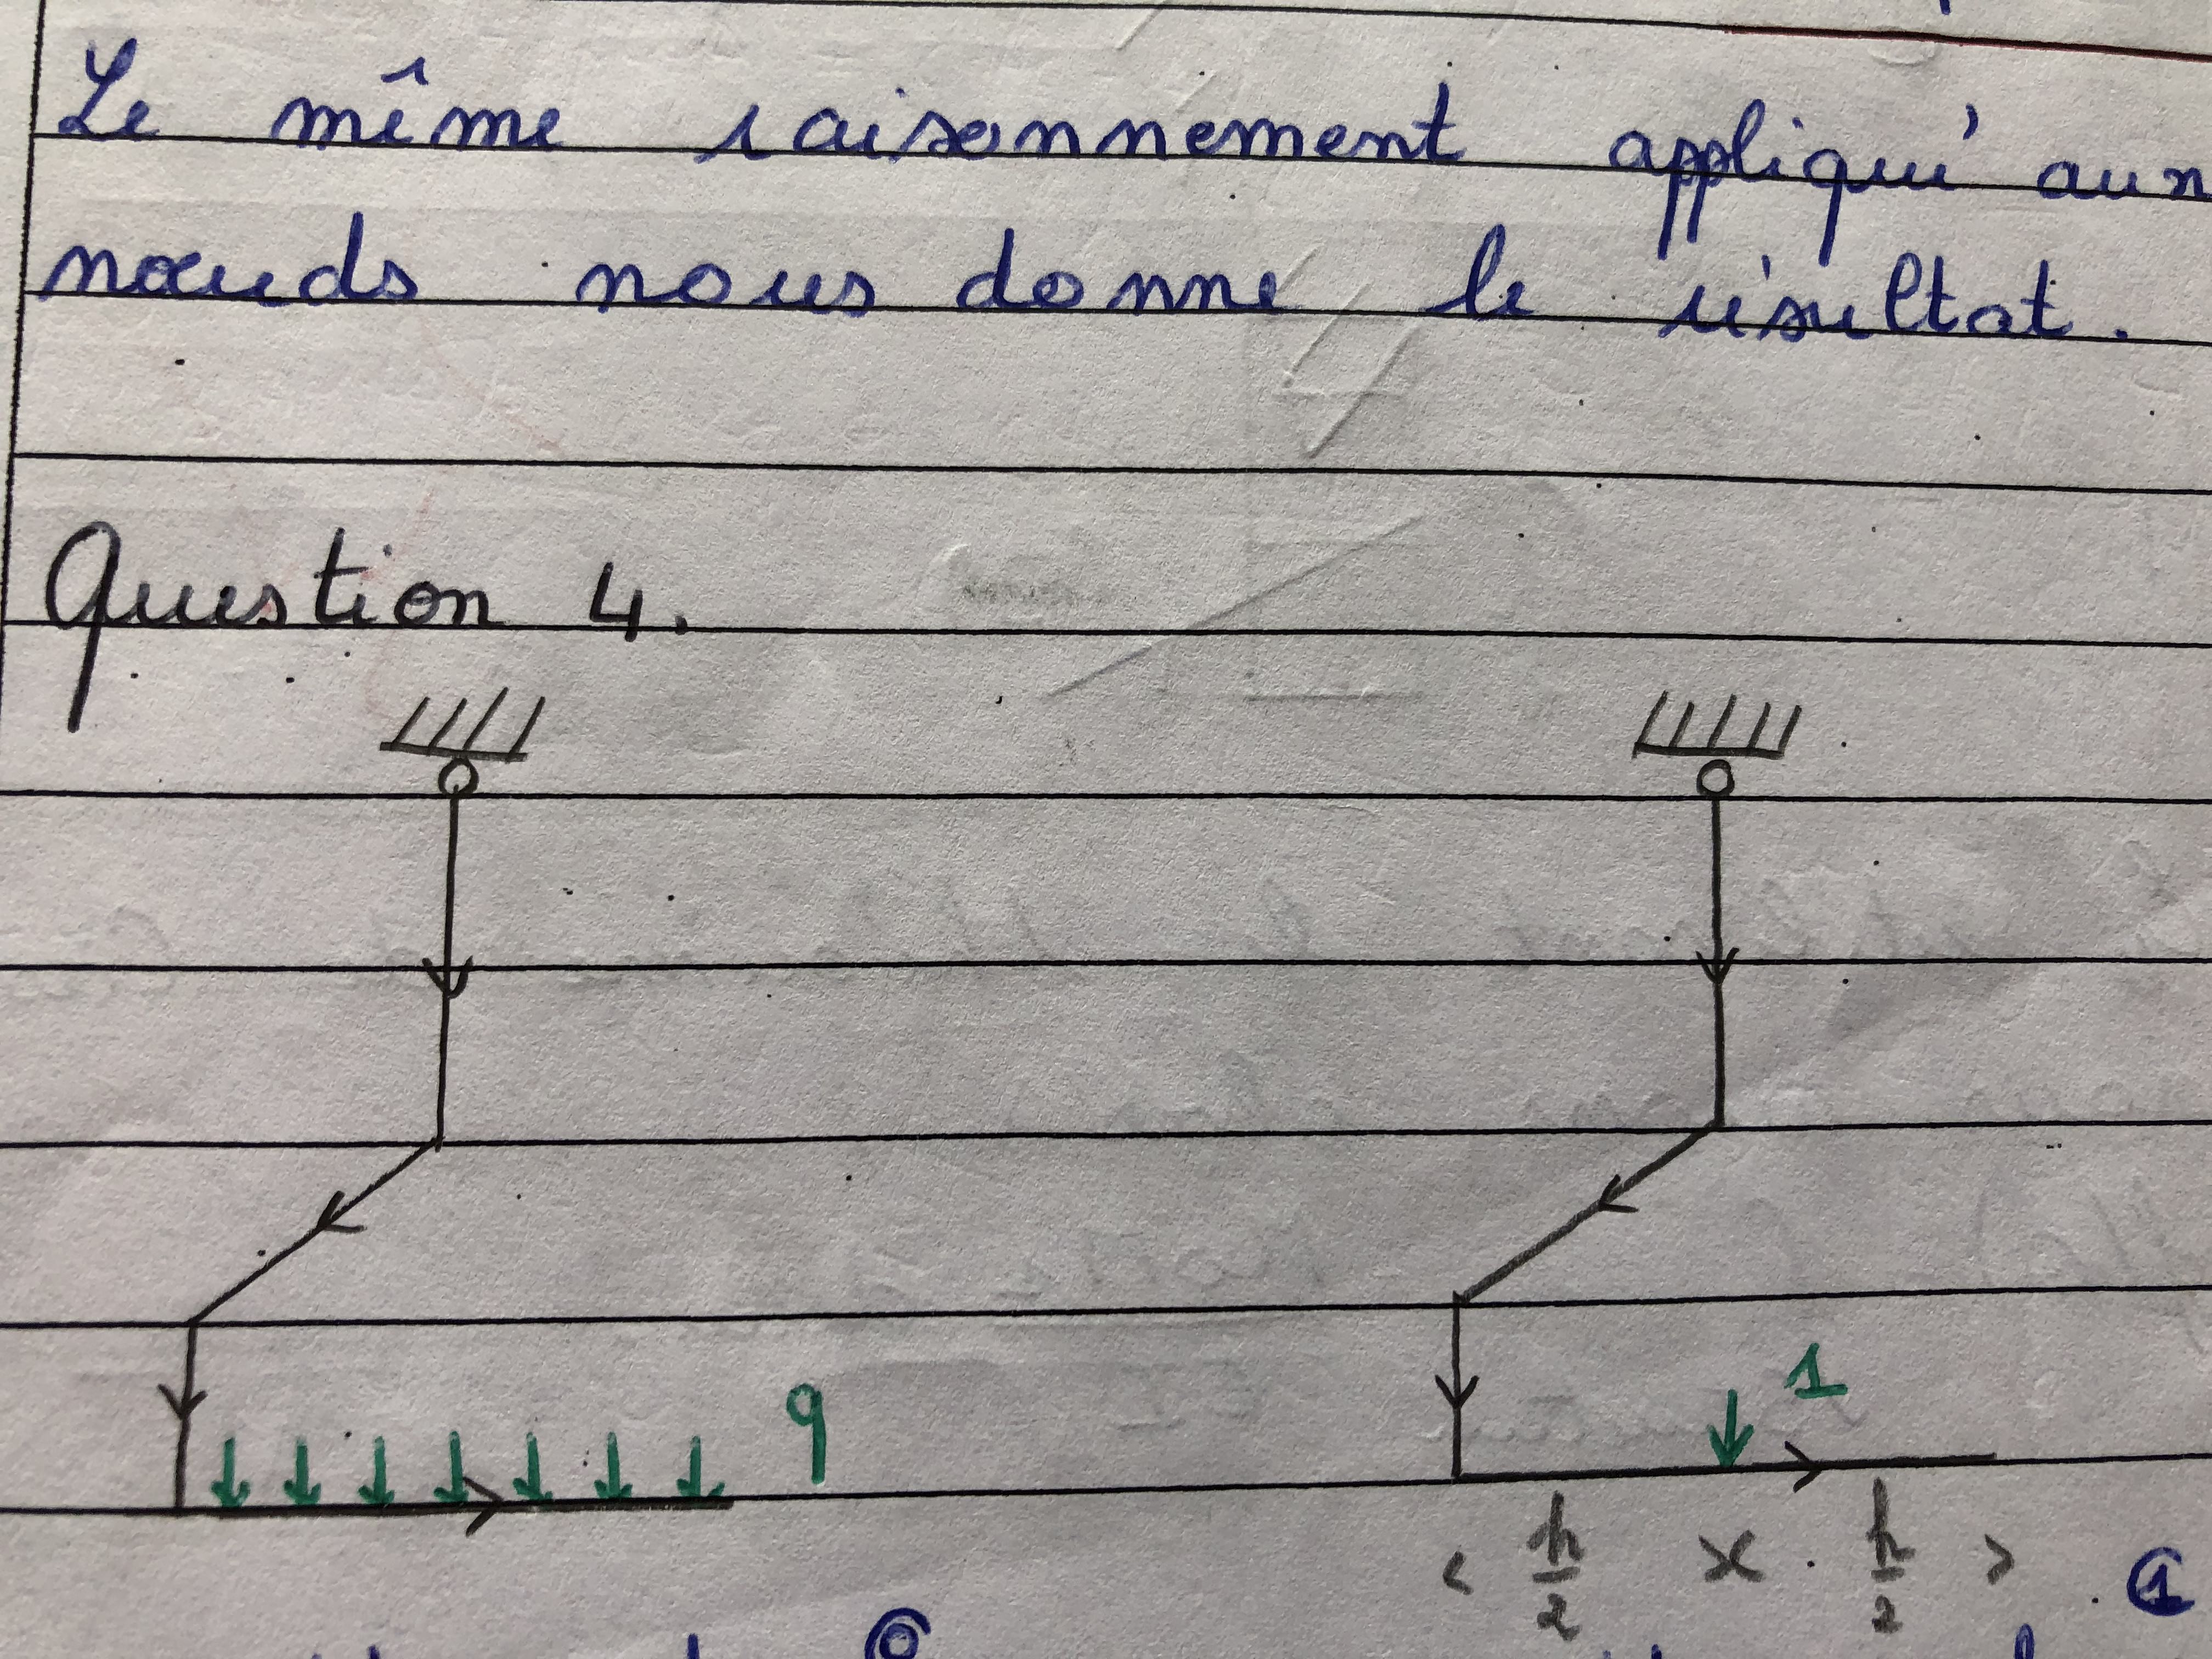 Le même raisonnement appliqué aux
noeuds nous donne le résultat.
Question 4.
q
1
h/2
h/2
0
1